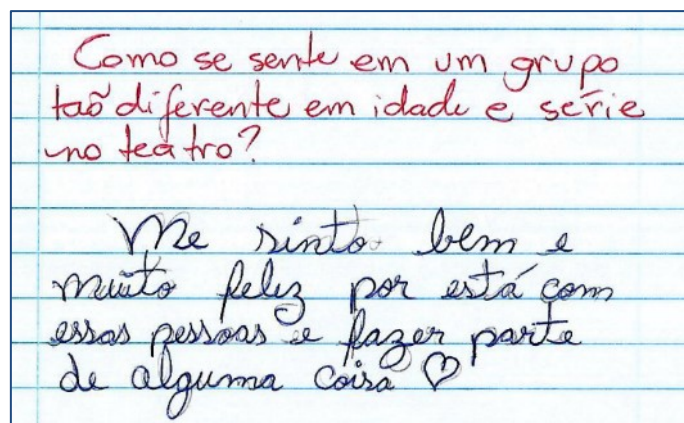 Como se sente em um grupo
taõ diferente em idade e série
no teatro?
Me sinto bem e
muito feliz por está com
essas pessoas e fazer parte
de alguma coisa ♡